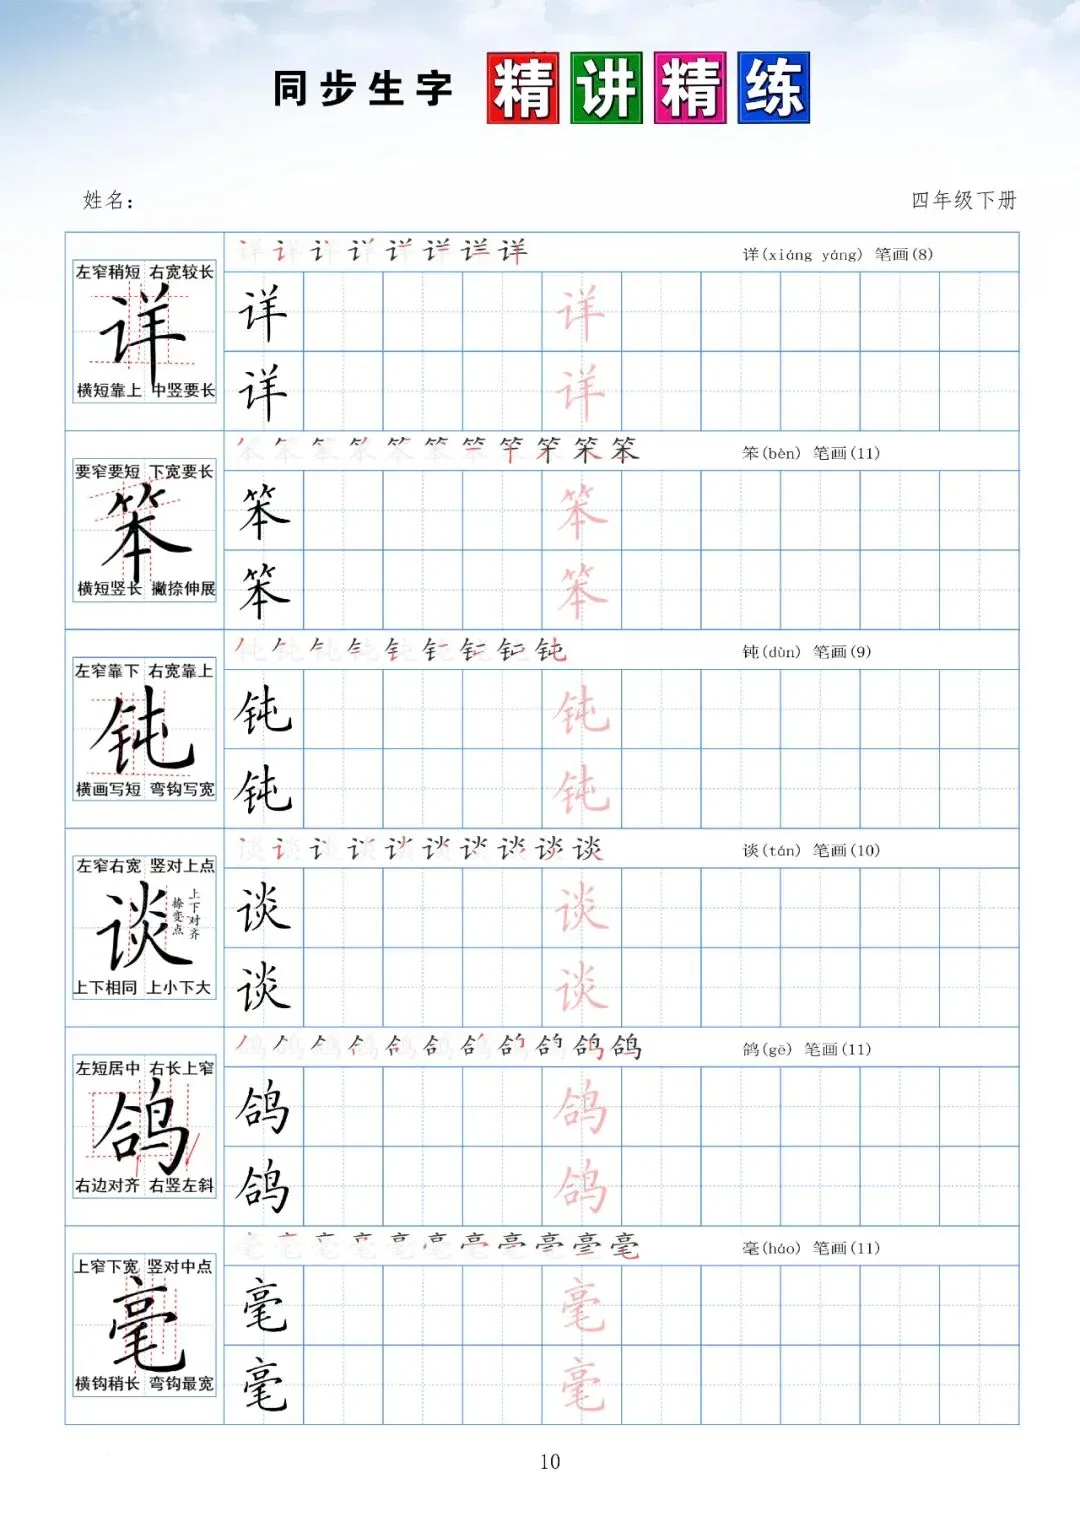 同步生字 精讲精练
姓名： 四年级下册
详 详 详 详 详 详 详 详 详(xiáng yáng) 笔画(8)
左窄稍短 右宽较长
详
横短靠上 中竖要长
详 详
详 详
笨 笨 笨 笨 笨 笨 笨 笨 笨 笨 笨 笨(bèn) 笔画(11)
要窄要短 下宽要长
笨
横短竖长 撇捺伸展
笨 笨
笨 笨
钝 钝 钝 钝 钝 钝 钝 钝 钝 钝(dùn) 笔画(9)
左窄靠下 右宽靠上
钝
横画写短 弯钩写宽
钝 钝
钝 钝
谈 谈 谈 谈 谈 谈 谈 谈 谈 谈 谈(tán) 笔画(10)
左窄右宽 竖对上点
谈
上下对齐
捺变点
上下相同 上小下大
谈 谈
谈 谈
鸽 鸽 鸽 鸽 鸽 鸽 鸽 鸽 鸽 鸽 鸽 鸽(gē) 笔画(11)
左短居中 右长上窄
鸽
右边对齐 右竖左斜
鸽 鸽
鸽 鸽
毫 毫 毫 毫 毫 毫 毫 毫 毫 毫 毫 毫(háo) 笔画(11)
上窄下宽 竖对中点
毫
横钩稍长 弯钩最宽
毫 毫
毫 毫
10